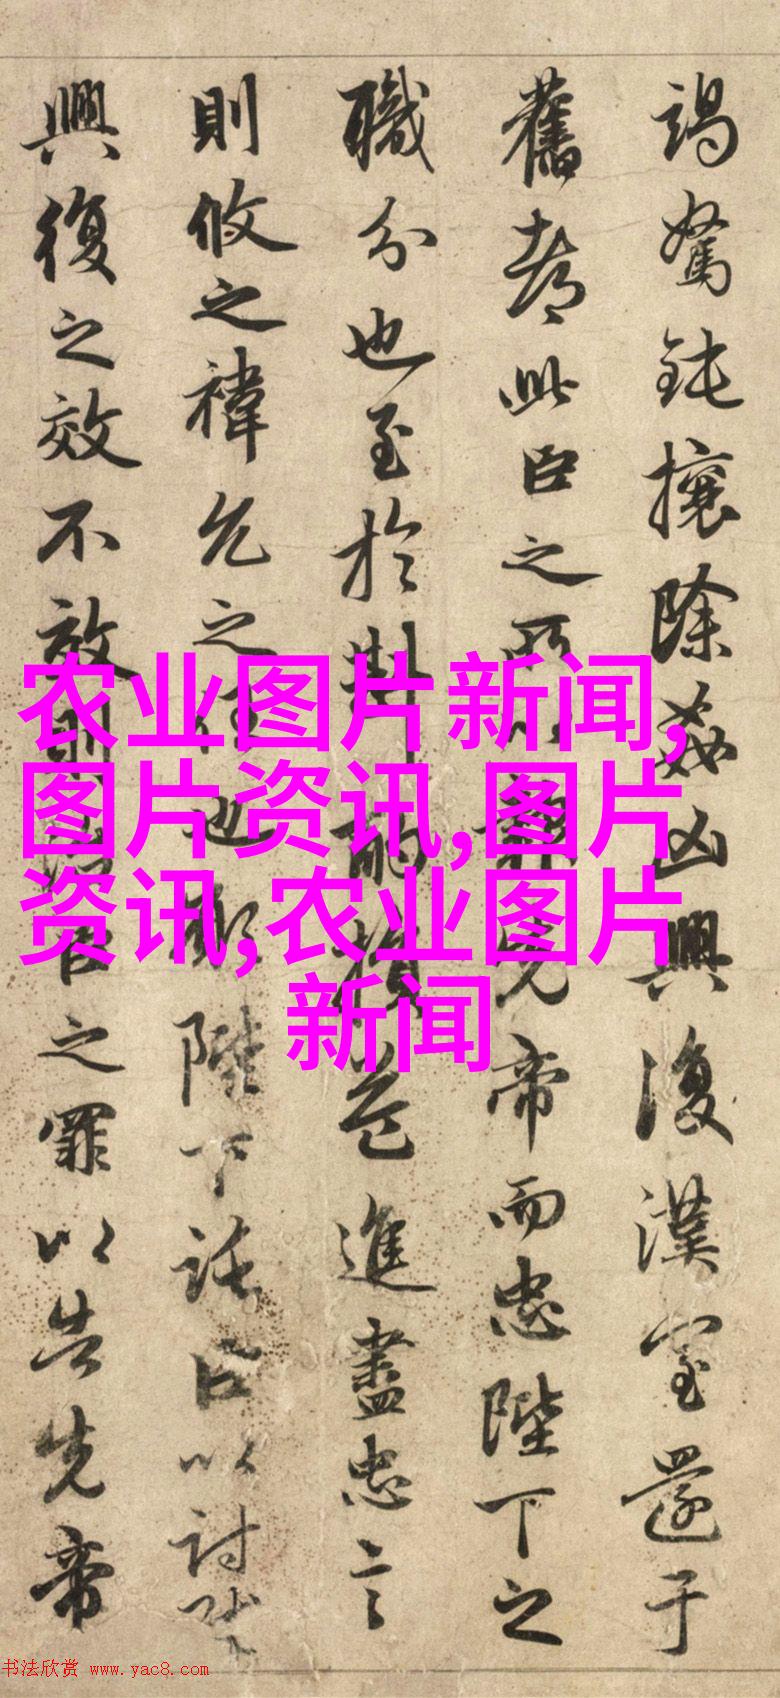 竭駑鈍攘除姦凶興復漢室還于
舊都此臣之所以報先帝而忠陛下之
職分也至於斟酌損益進盡忠言
則攸之禕允之任也願陛下託臣以討賊
興復之效不效則治臣之罪以告先帝
农业图片新闻,
图片资讯,图片
资讯,农业图片
新闻
书法欣赏 www.yac8.com